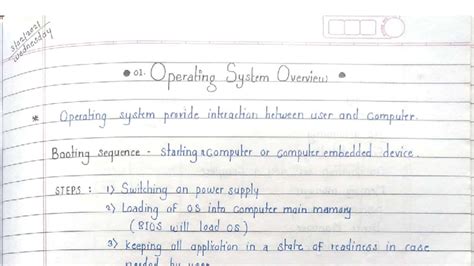 3/02/2021
Wednesday
01. Operating System Overview
* Operating system provide interaction between user and computer.
Booting sequence - starting a computer or computer embedded device.
STEPS : 1) Switching on power supply
2) Loading of OS into computer main memory
(BIOS will load OS)
3) keeping all application in a state of readiness in case
needed by user